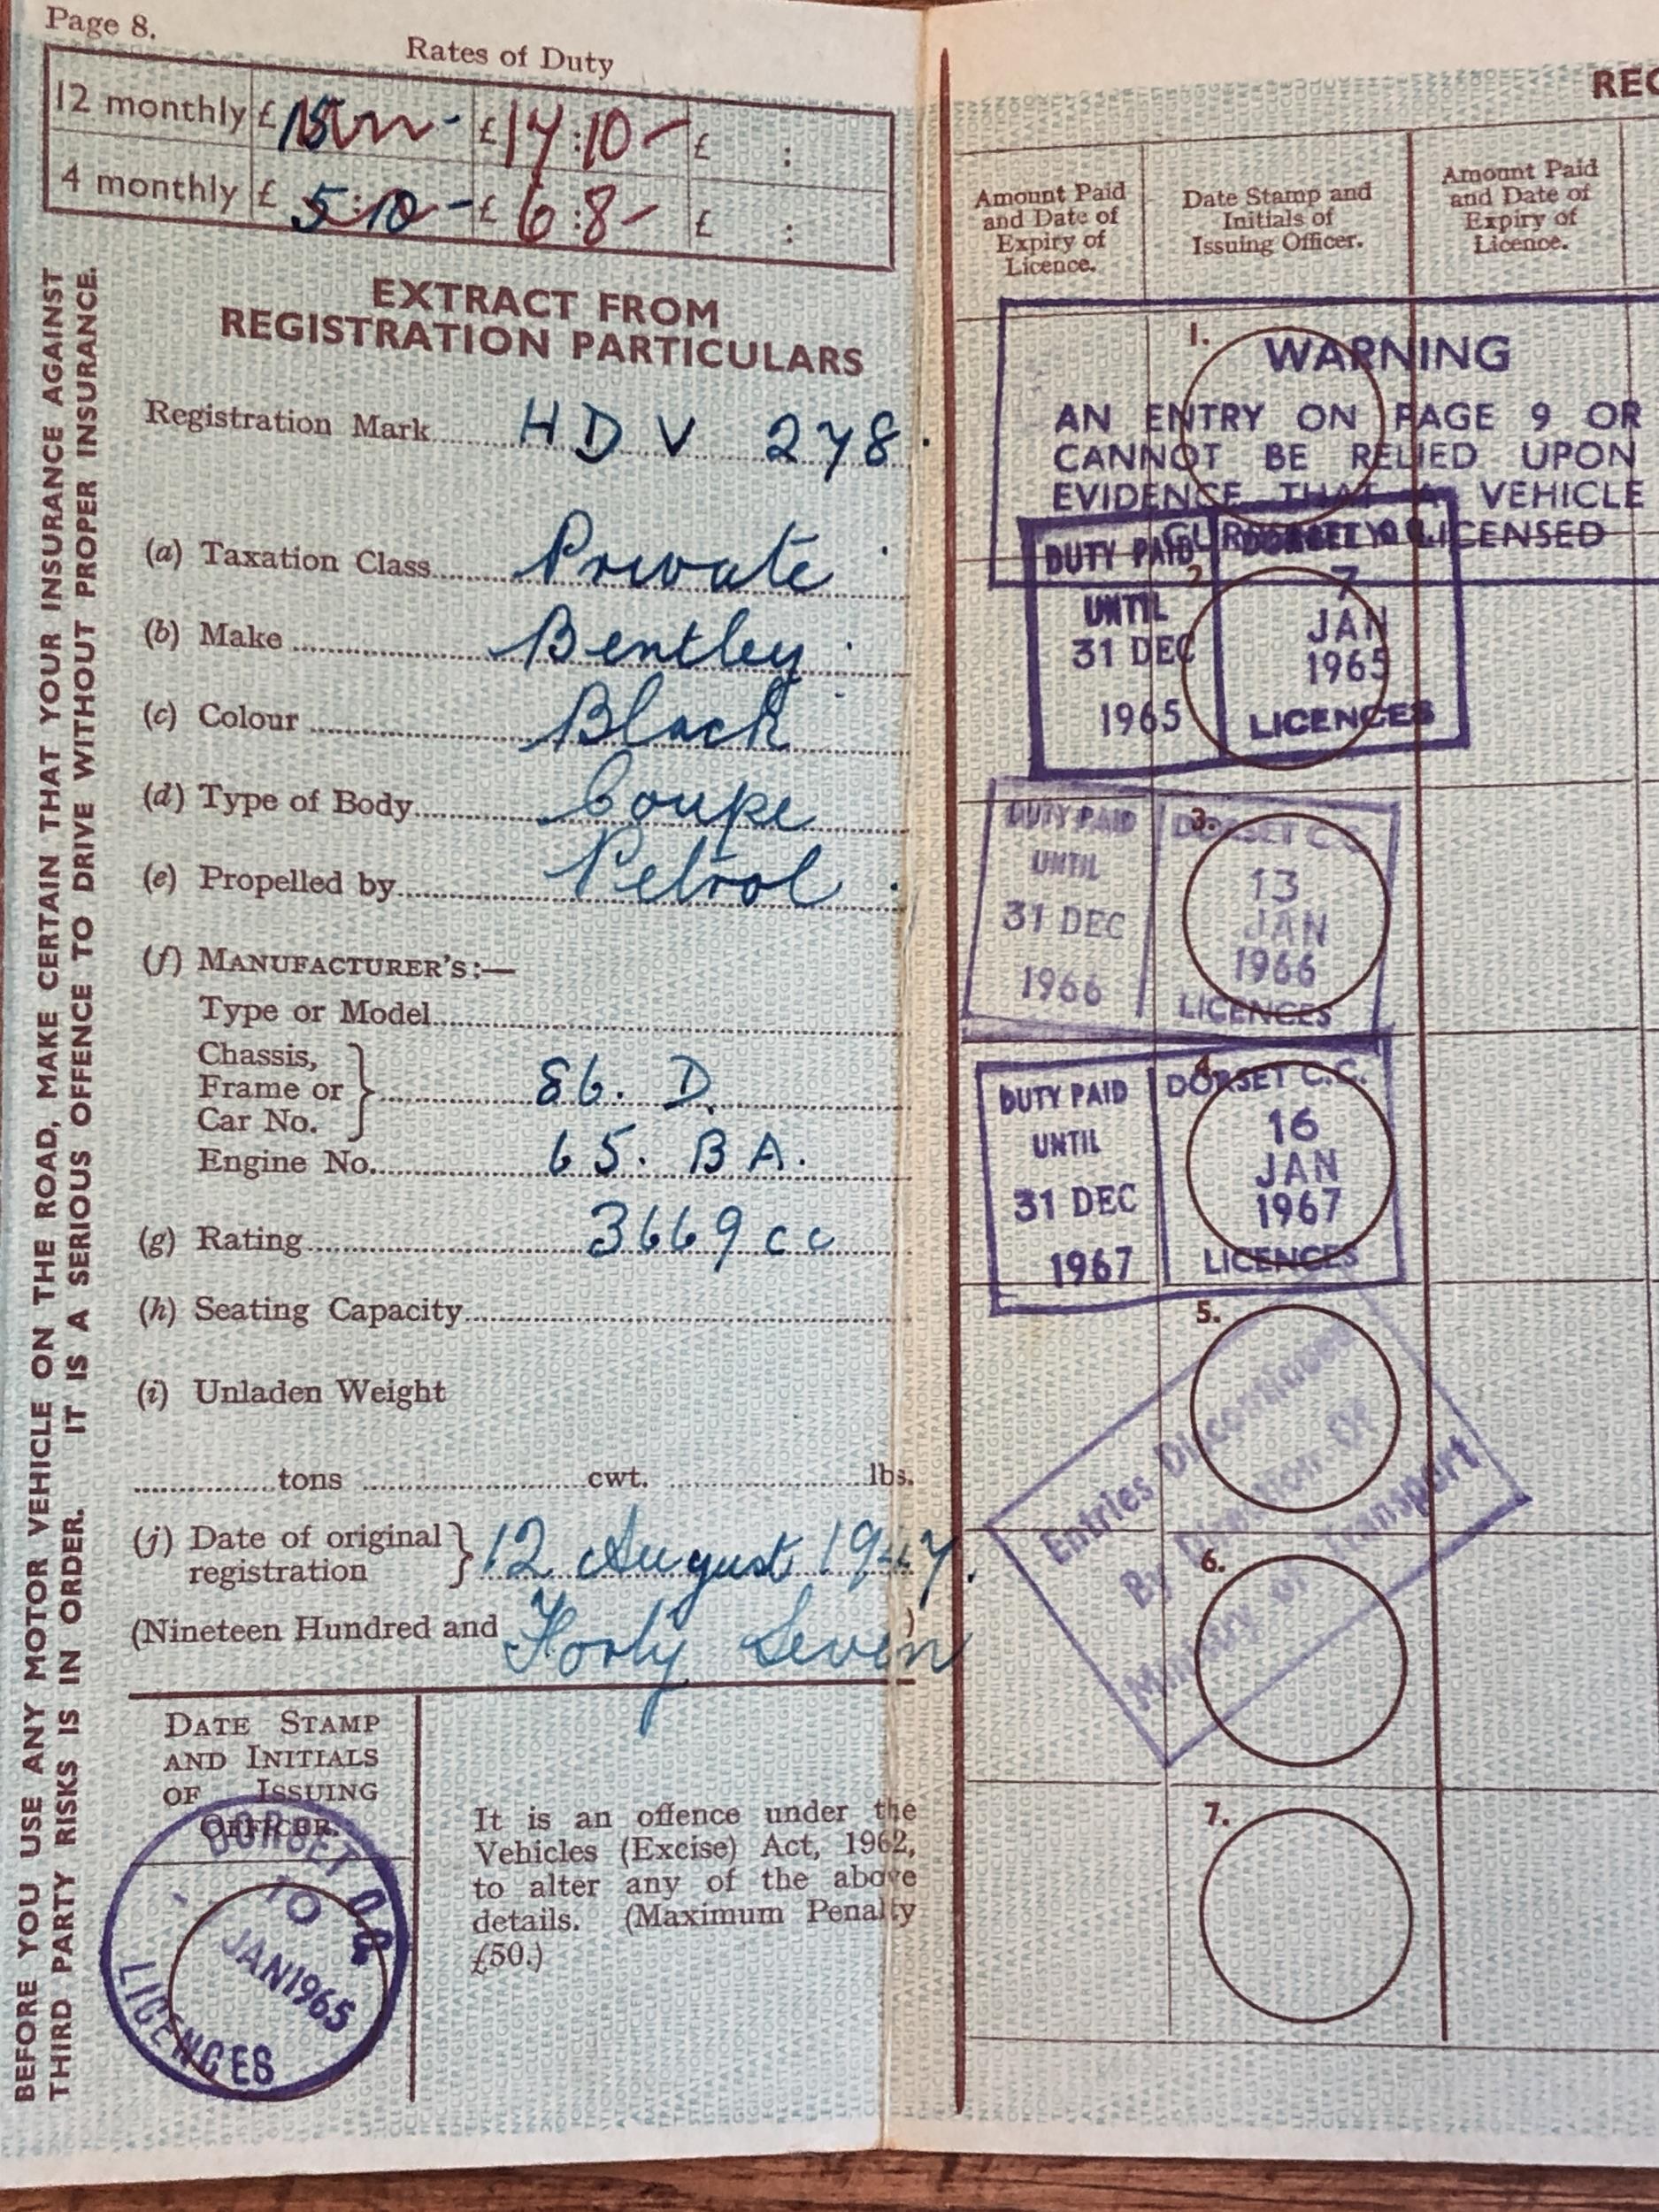 Page 8.
Rates of Duty
12 monthly £ 15 - £ 14:10 - £ :
4 monthly £ 5:10 - £ 6:8 - £ :
EXTRACT FROM
REGISTRATION PARTICULARS
Registration Mark HDV 278.
(a) Taxation Class Private
(b) Make Bentley
(c) Colour Black
(d) Type of Body Coupe
(e) Propelled by Petrol
(f) MANUFACTURER'S:—
Type or Model
Chassis,
Frame or
Car No. 86. D.
Engine No. 65. BA.
(g) Rating 3669 cc
(h) Seating Capacity
(i) Unladen Weight
tons cwt. lbs.
(j) Date of original
registration 12 August 1947.
(Nineteen Hundred and Forty Seven)
DATE STAMP
AND INITIALS
OF ISSUING
OFFICER.
DORSET C.C.
JAN 1965
LICENCES
It is an offence under the
Vehicles (Excise) Act, 1962,
to alter any of the above
details. (Maximum Penalty
£50.)
BEFORE YOU USE ANY MOTOR VEHICLE ON THE ROAD, MAKE CERTAIN THAT YOUR INSURANCE AGAINST
THIRD PARTY RISKS IS IN ORDER. IT IS A SERIOUS OFFENCE TO DRIVE WITHOUT PROPER INSURANCE.
REC
Amount Paid
and Date of
Expiry of
Licence.
Date Stamp and
Initials of
Issuing Officer.
Amount Paid
and Date of
Expiry of
Licence.
1.
WARNING
AN ENTRY ON PAGE 9 OR
CANNOT BE RELIED UPON
EVIDENCE THAT A VEHICLE
CURRENTLY LICENSED
2.
DUTY PAID
UNTIL
31 DEC
1965
7
JAN
1965
LICENCES
3.
DUTY PAID
UNTIL
31 DEC
1966
DORSET C.C.
13
JAN
1966
LICENCES
4.
DUTY PAID
UNTIL
31 DEC
1967
DORSET C.C.
16
JAN
1967
LICENCES
5.
Entries Discontinued
By Direction Of
Ministry of Transport
6.
7.